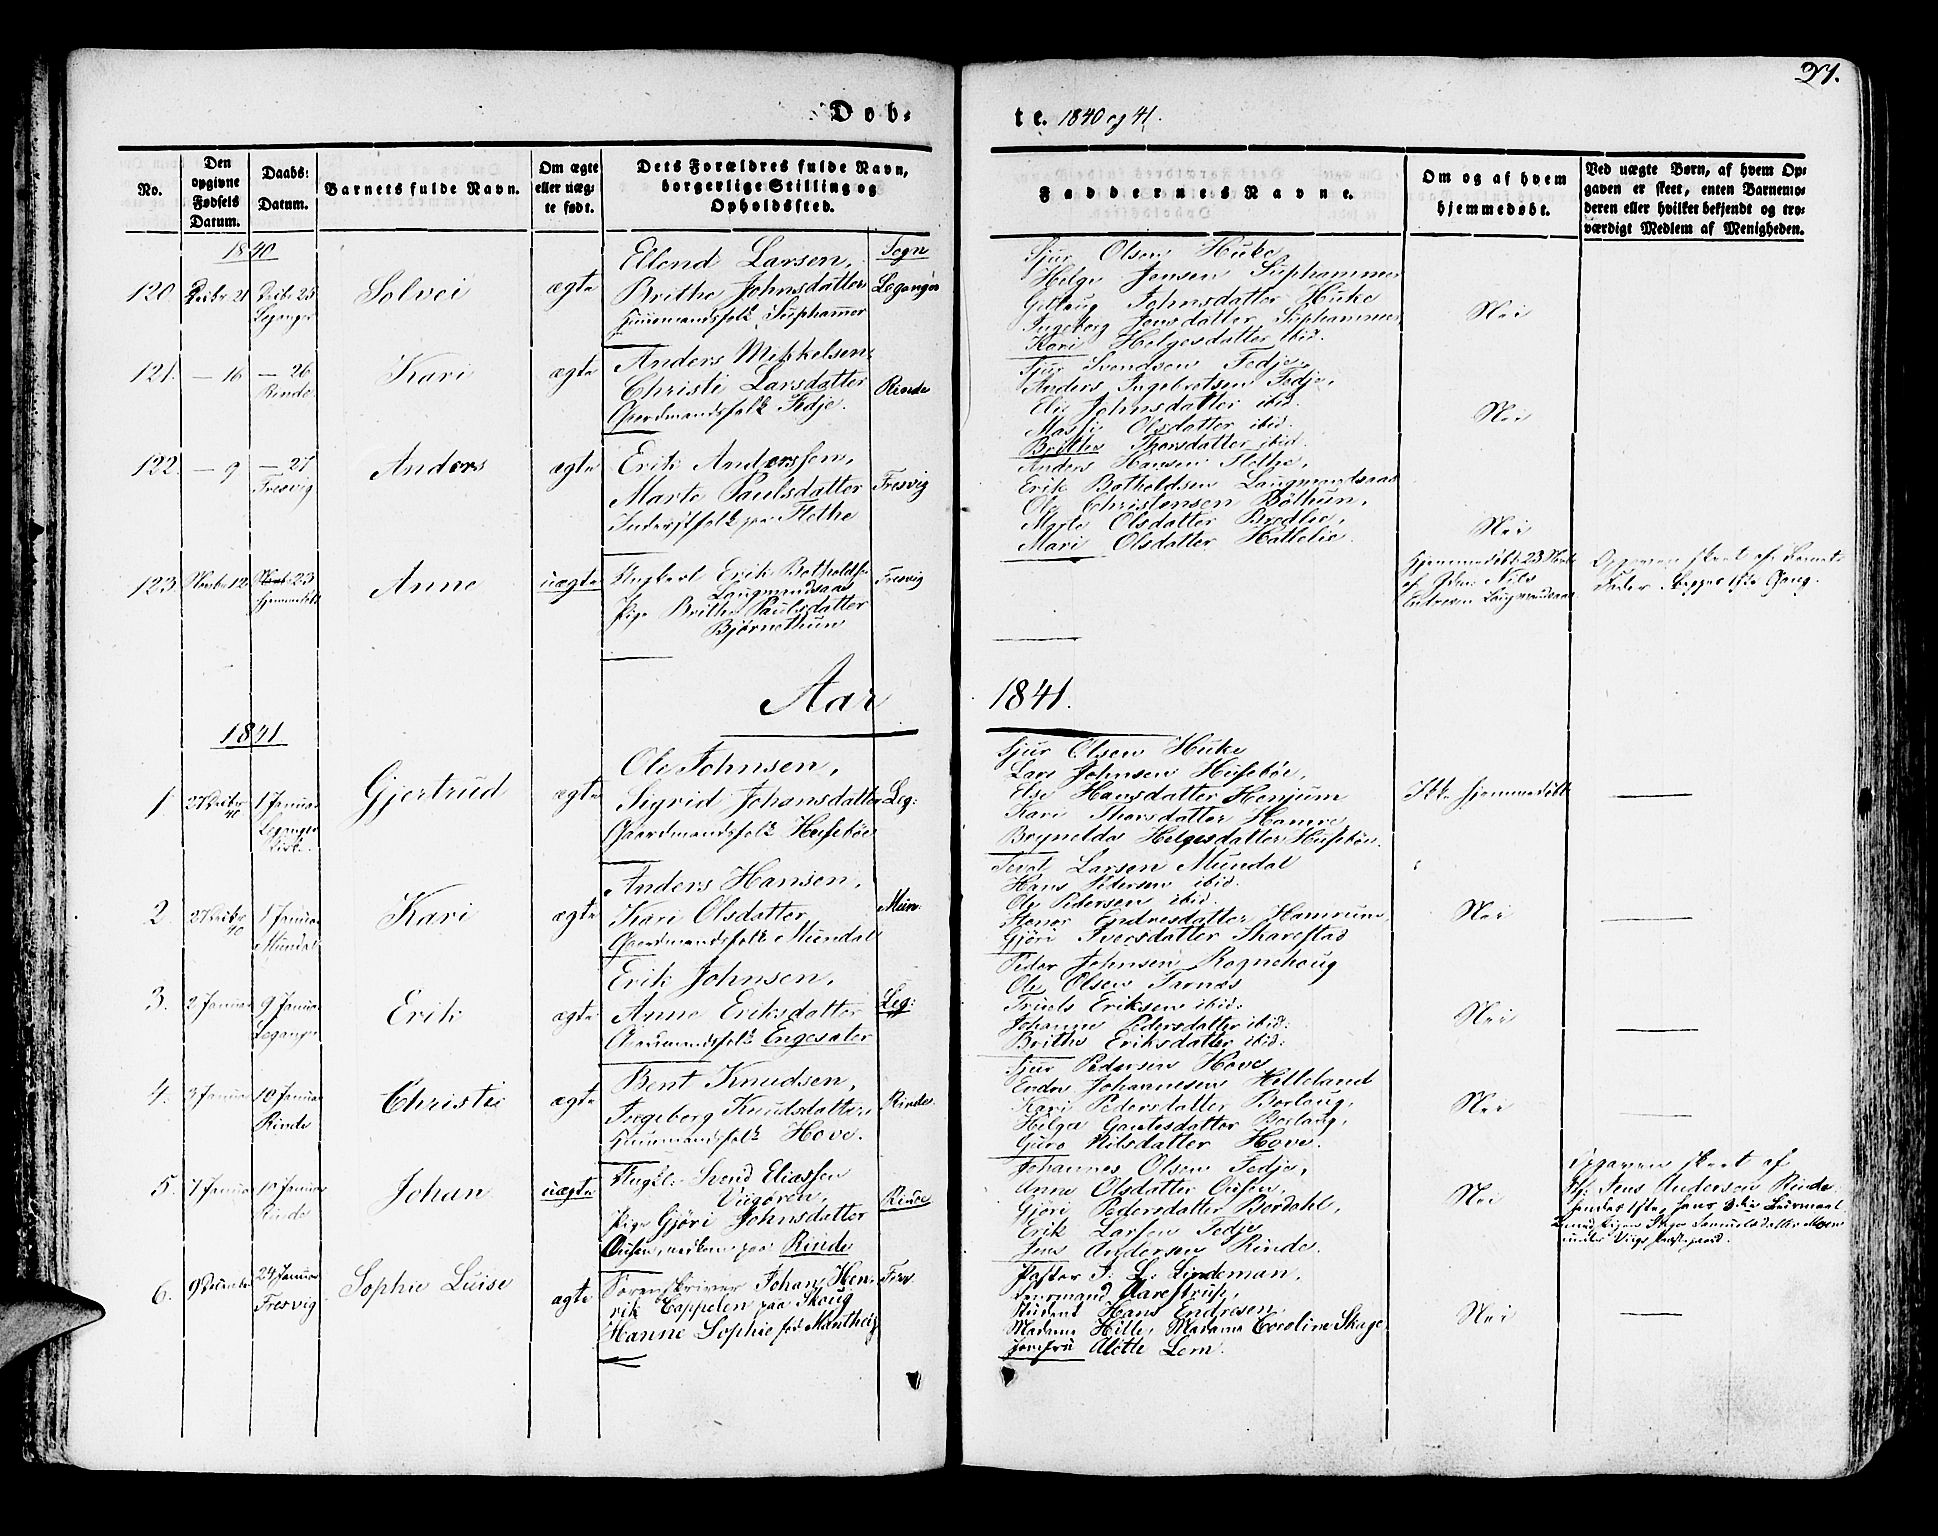 27.
Døb-
te. 1840 og 41.
No.
Den opgivne Fødsels Datum.
Daabs-Datum.
Barnets fulde Navn.
Om ægte eller uægte født.
Dets Forældres fulde Navn, borgerlige Stilling og Opholdssted.
Faddernes Navne.
Om og af hvem hjemmedøbt.
Ved uægte Børn, af hvem Opgaven er skeet, enten Barnemoderen eller hvilket bekjendt og troværdigt Medlem af Menigheden.
1840
Sogn
120
Decbr 21
Decbr 25
Leganger
Solvei
ægte
Elend Larsen,
Brithe Johnsdatter
Huusmandsfolk Suphammer
Leganger
Sjur Olsen Huke
Helge Jensen Suphammer
Gitlaug Johnsdatter Huke
Ingeborg Jensdatter Suphammer
Kari Helgesdatter ibid.
Nei
121.
— 16
— 26
Rinde
Kari
ægte
Anders Mikkelsen,
Christi Larsdatter
Gaardmandsfolk Fedje.
Rinde
Sjur Svendsen Fedje,
Anders Ingebretsen Fedje,
Eli Johnsdatter ibid.
Olsdatter ibid.
Brithe Thorsdatter ibid.
Nei
122.
— 9
— 27
Fresvig
Anders
ægte
Erik Anderssen,
Marte Paulsdatter
Inderstfolk paa Flethe
Fresvig
Anders Hansen Flethe,
Erik Botholdsen Langmandsaas
Ole Christensen Böthun,
Marte Olsdatter Bredlie,
Mari Olsdatter Hatlelie.
Nei
123.
Novbr 12.
23
hjemmedøbt
Anne
uægte
Ungkarl Erik Botholdsen
Langmandsaas
Pige Brithe Paulsdatter
Bjørnethun
Fresvig
Hjemmedöbt 23 Novbr
af Nils
Andresen Langmandsaas
Opgaven skeet af Barnets
Fader. Begges 1ste Gang.
Aar 1841.
1841.
1
27 Decbr 40
1 Januar
Leganger
Kirke.
Gjertrud
ægte
Ole Johnsen,
Sigrid Johansdatter
Gaardmandsfolk Husebøe
Leg:
Sjur Olsen Huke
Lars Johnsen Husebøe,
Else Hansdatter Henjum
Kari Thorsdatter Hamre
Helgesdatter Husebøe.
Ikke hjemmedöbt
2.
27 Decbr 40
1 Januar
Mundal
Kari
ægte
Anders Hansen,
Kari Olsdatter
Gaardmandsfolk Mundal
Mun.
Larsen Mundal
Hans Pedersen ibid.
Ole Pedersen ibid.
Endresdatter Hamrum,
Gjöri Iversdatter Skarestad
Nei
3.
2 Januar
9 Januar
Leganger
Erik
ægte
Erik Johnsen,
Anne Eriksdatter
Huusmandsfolk Engesæter
Leg:
Peder Johnsen Rognehoug
Ole Olsen Tarnes
Truels Eriksen ibid:
Johanne Pedersdatter ibid:
Brithe Eriksdatter ibid:
Nei
4.
3 Januar
10 Januar
Rinde
Christie
ægte
Bent Knudsen,
Ingeborg Knudsdatter,
Huusmandsfolk Hove.
Rinde.
Sjur Pedersen Hove
Endre Johannesen Hilleland
Kari Pedersdatter Borlaug,
Helga Gautesdatter Borlaug,
Guro Nilsdatter Hove.
Nei
5.
7 Januar
10 Januar
Rinde
Johan
uægte
Ungkl: Svend Eliassen
Viigøren,
Pige Gjöri Johnsdatter
Ousen, værkene paa Rinde
Rinde
Johannes Olsen Fedje,
Anne Olsdatter Ousen,
Gjöri Pedersdatter Bordahl,
Erik Larsen Fedje
Jens Andersen Rinde.
Nei
Opgaven skeet af
Jens Andersen Rinde
hendes 1ste, hans 3die Leiermaal
med Pigen Samuelsdatter Moen
under Viigs Præstegjæld.
6.
9 Decembr
24 Januar
Fresvig
Sophie Luise
ægte
Sorenskriver Johan Hen-
rik Cappelen paa Skoug
Hanne Sophie fød Manthey
Fres.
Pastor J. L: Lindeman,
Aarestrup,
Student Hans Endresen
Madame Hille, Madame Caroline Skage
Jomfru Alette Lem.
Nei